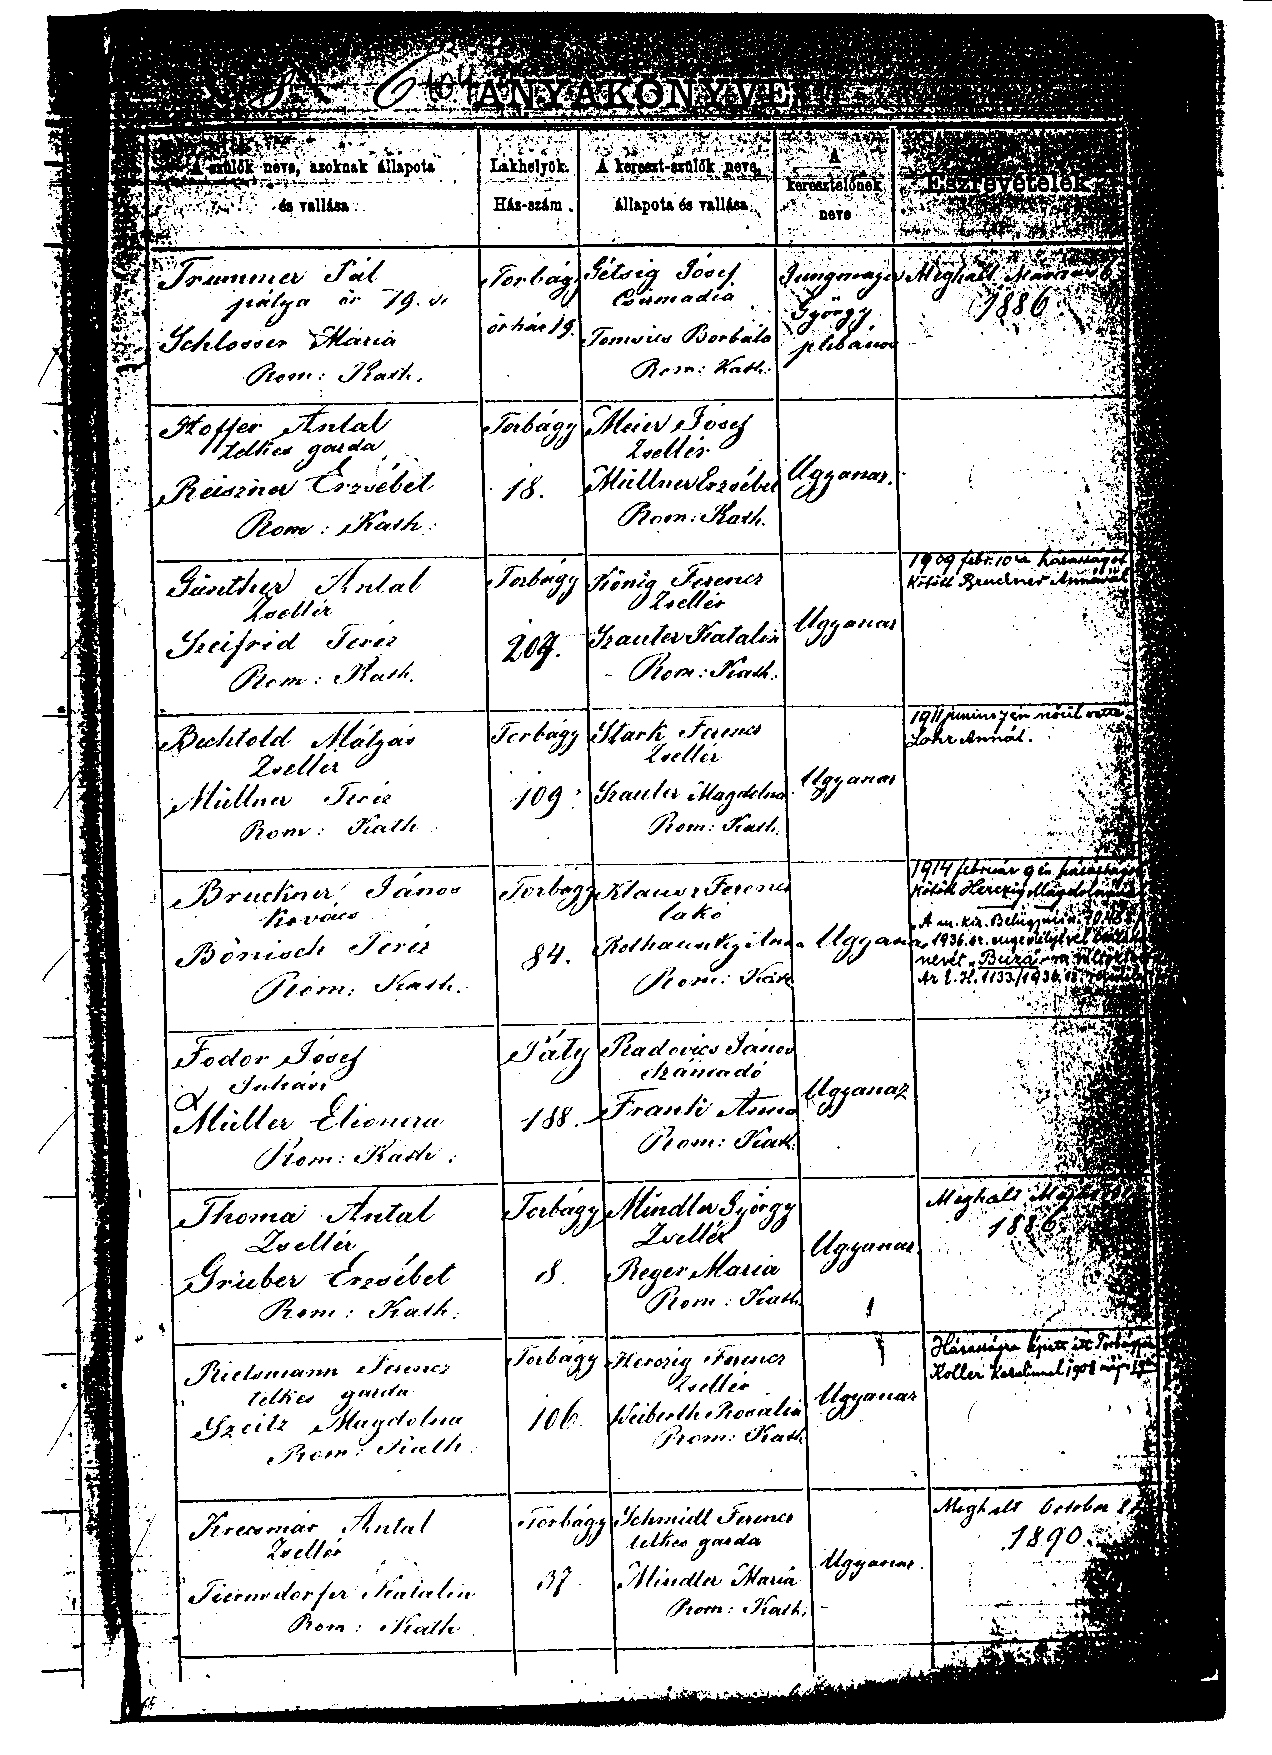 ANYAKÖNYVE
A szülők neve, azoknak állapota
és vallása
Lakhelyök.
Ház-szám.
A kereszt-szülők neve,
állapota és vallása.
A
keresztelőnek
neve
Észrevételek
Trummer Pál
pálya őr 79. sz
Schlosser Mária
Rom: Kath.
Torbágy
őrház 19.
József
Csizmadia
Borbála
Rom: Kath.
Jungmayer
György
plébános
Meghalt Március 6
1886.
Hoffer Antal
telkes gazda
Reiszner Erzsébet
Rom: Kath:
Torbágy
18.
Meier József
Zsellér
Müllner Erzsébet
Rom: Kath.
Ugyanaz.
Günther Antal
Zsellér
Szeifrid Teréz
Rom: Kath.
Torbágy
207.
König Ferencz
Zsellér
Szauter Katalin
Rom: Kath.
Ugyanaz
1909 febr. 10én házasságot
kötött Bruckner Annával
Bechtold Mátyás
Zsellér
Müllner Teréz
Rom: Kath
Torbágy
109.
Stark Ferencz
Zsellér
Szauter Magdolna
Rom: Kath.
Ugyanaz
1911 junius 7én nőül vette
Lohr Annát.
Bruckner János
Kovács
Bönisch Teréz
Rom: Kath.
Torbágy
84.
Klausz Ferencz
lakó
Anna
Rom: Kath
Ugyanaz
1914 február 9én házasságot
kötött Herczig Magdolnával
A m. kir. Belügymin.
1936. engedélyével
nevét "Búzá"-ra változt
1133/1936
Fodor József
Juhász
Müller Eleonora
Rom: Kath:
Páty
188.
Radovics János
számadó
Frank Anna
Rom: Kath.
Ugyanaz
Thoma Antal
Zsellér
Gruber Erzsébet
Rom: Kath.
Torbágy
8.
Mindler György
Zsellér
Reger Maria
Rom: Kath.
Ugyanaz
Meghalt
1886.
Rielsmann Ferencz
telkes gazda
Szeitz Magdolna
Rom: Kath.
Torbágy
106.
Herczig Ferencz
Zsellér
Weiberth Rozalia
Rom: Kath
Ugyanaz
Házasságra lépett itt Torbágyon
Koller Katalinnal 1908 máj. 19én
Krecsmár Antal
Zsellér
Katalin
Rom: Kath
Torbágy
37
Schmidt Ferencz
telkes gazda
Mindler Mária
Rom: Kath.
Ugyanaz.
Meghalt October
1890.